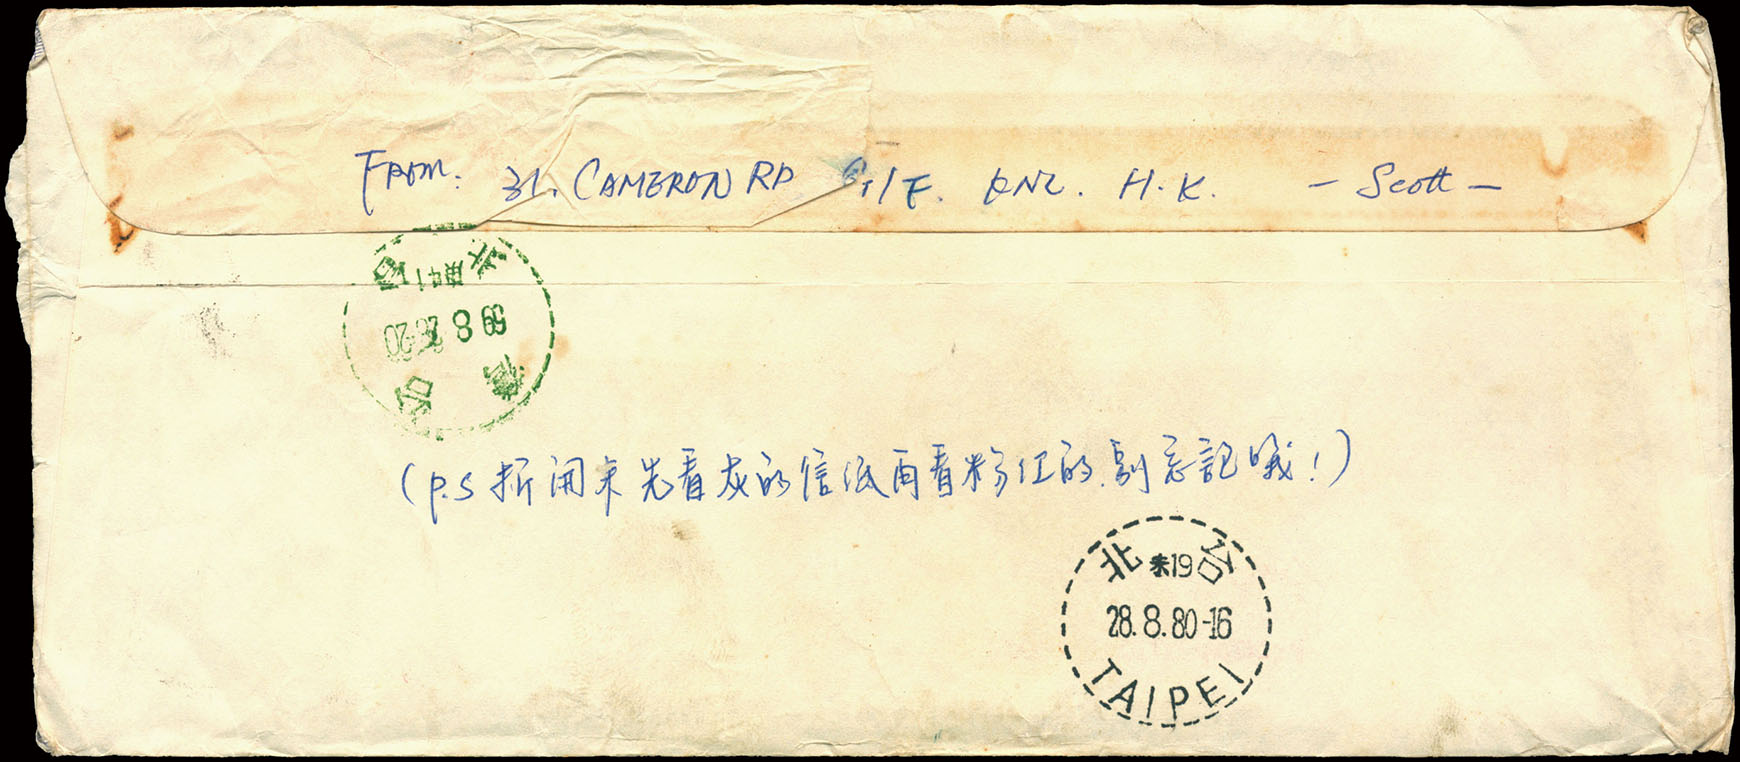 FROM: 31, CAMERON RD G/F. KNL. H.K. — Scott —
69.8.28-20
(P.S 折開來先看灰的信紙再看粉紅的,別忘記哦!)
台北
28.8.80-16
TAIPEI